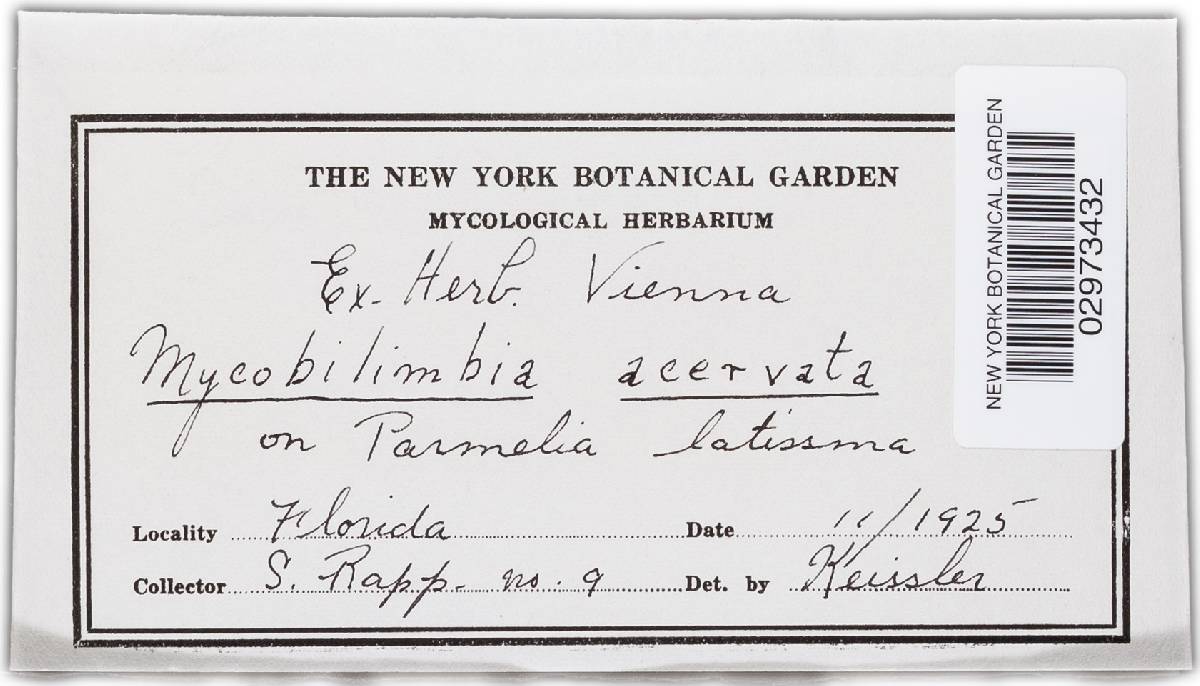 THE NEW YORK BOTANICAL GARDEN
MYCOLOGICAL HERBARIUM
Ex. Herb. Vienna
Mycobilimbia acervata
on Parmelia latissma
Locality Florida Date 11/1925
Collector S. Rapp. no. 9 Det. by Keissler
NEW YORK BOTANICAL GARDEN
02973432